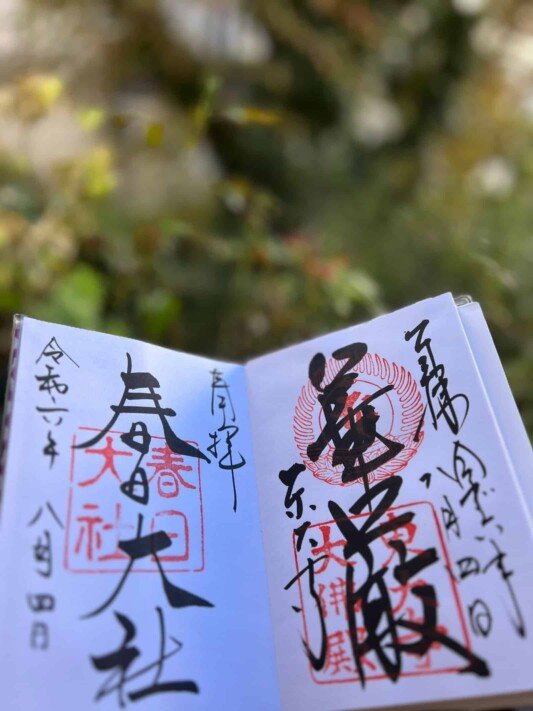 奉拝
華厳
東大寺
東大寺
大佛殿
令和六年
八月四日
奉拝
春日大社
春日
大社
令和六年
八月四日